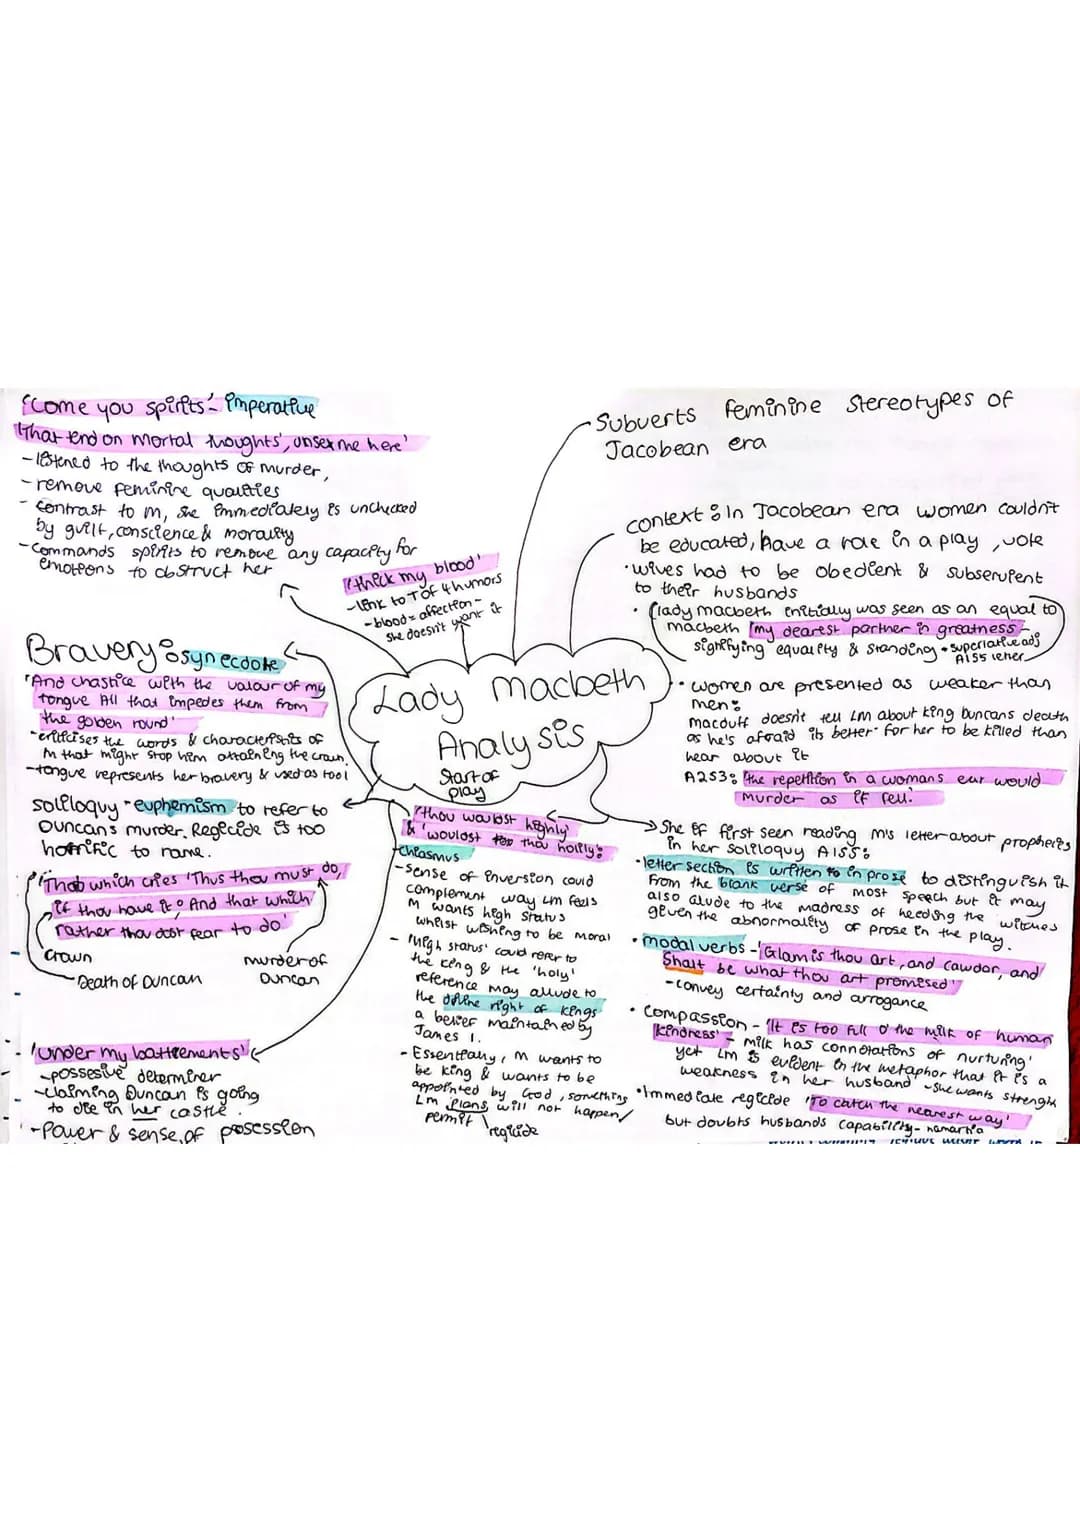 'Come you spirits'- imperative
'That tend on mortal thoughts', unsex me here'
-listened to the thoughts of murder,
-remove feminine qualities
- contrast to M, she immediately is unchecked
by guilt, conscience & morality
-Commands spirits to remove any capacity for
emotions to obstruct her
'thick my blood'
-link to T of 4 humors
-blood = affection-
she doesn't want it
Bravery: synecdoke
'And chastice with the valour of my
tongue All that impedes them from
the golden round'
-criticises the words & characteristics of
M that might stop him attaining the crown.
-tongue represents her bravery & used as tool
soliloquy - euphemism to refer to
Duncans murder. Regicide is too
horrific to name.
'That which cries 'Thus thou must do,
if thou have it: And that which
rather thou dost fear to do'
Crown
Death of Duncan
murder of
Duncan
'Under my battlements'
-possesive determiner
-claiming Duncan is going
to die in her castle.
-Power & sense of posession
Lady macbeth
Analysis
Start of
play
'thou wouldst highly'
& 'wouldst thou holily:
Chiasmus
-sense of inversion could
complement way LM feels
M wants high status
whilst wishing to be moral
- 'High status' could refer to
the king & the 'holy'
reference may allude to
the divine right of kings
a belief maintained by
James 1.
- Essentially, M wants to
be king & wants to be
appointed by God, something
LM plans will not happen/
permit
regicide
Subverts feminine stereotypes of
Jacobean era
context: In Jacobean era women couldn't
be educated, have a role in a play, vote
·wives had to be obedient & subservient
to their husbands
· (lady macbeth initially was seen as an equal to
macbeth 'my dearest partner in greatness-
signifying equality & standing • superlative adj
A1S5 letter
· women are presented as weaker than
men:
macduff doesn't tell LM about king Duncans death
as he's afraid its better for her to be killed than
hear about it
A2S3: 'the repetition in a womans ear would
murder as it fell.'
She if first seen reading M's letter about propheries
in her soliloquy A1S5:
·letter section is written in prose to distinguish it
from the blank verse of most speech but it may
also alude to the madness of heeding the witches
given the abnormality of prose in the play.
· modal verbs - 'Glamis thou art, and cawdor, and
Shalt be what thou art promised'
-convey certainty and arrogance
· Compassion - 'It is too full o' the milk of human
kindness' - milk has connotations of nurturing'
yet LM is evident in the metaphor that it is a
weakness in her husband -she wants strength
·Immediate regicide 'To catch the nearest way'
but doubts husbands capability- hamartia